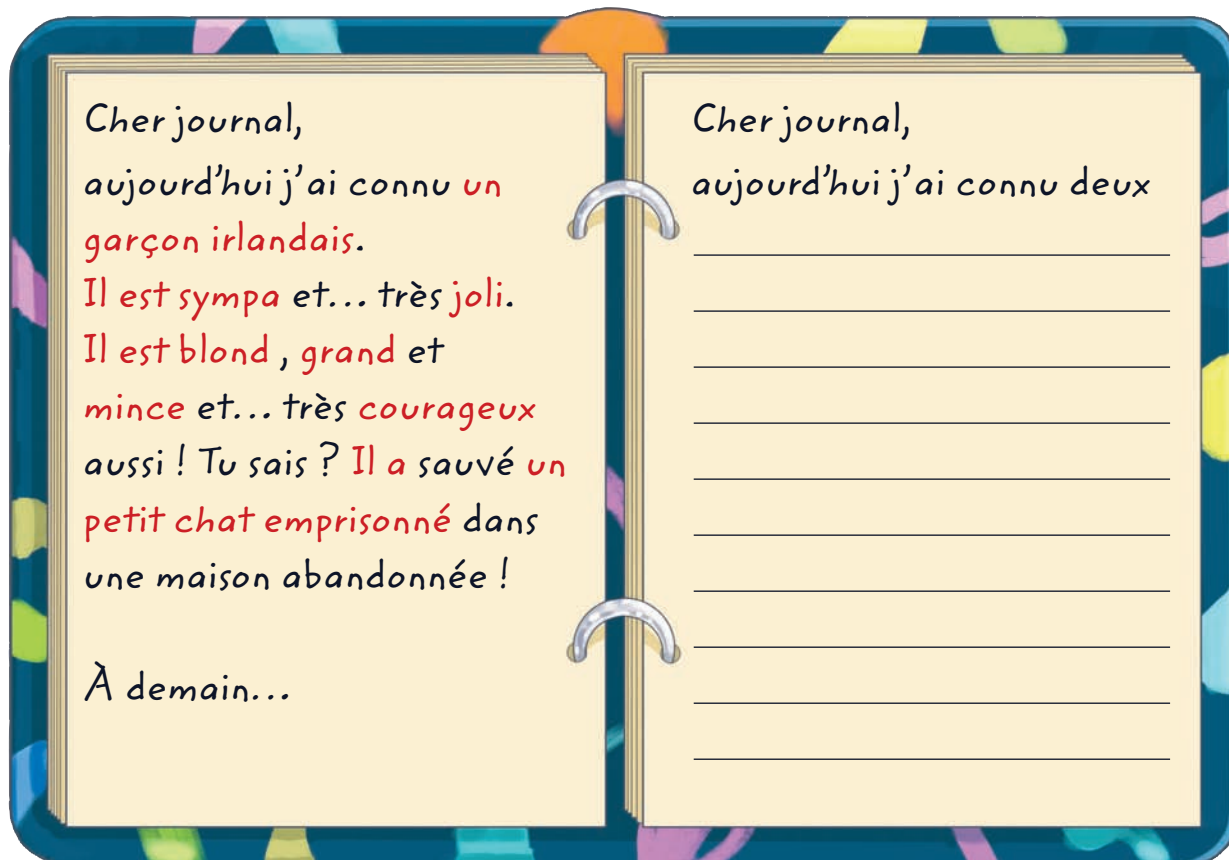 Cher journal,
aujourd'hui j'ai connu un
garçon irlandais.
Il est sympa et... très joli.
Il est blond , grand et
mince et... très courageux
aussi ! Tu sais ? Il a sauvé un
petit chat emprisonné dans
une maison abandonnée !
À demain...
Cher journal,
aujourd'hui j'ai connu deux